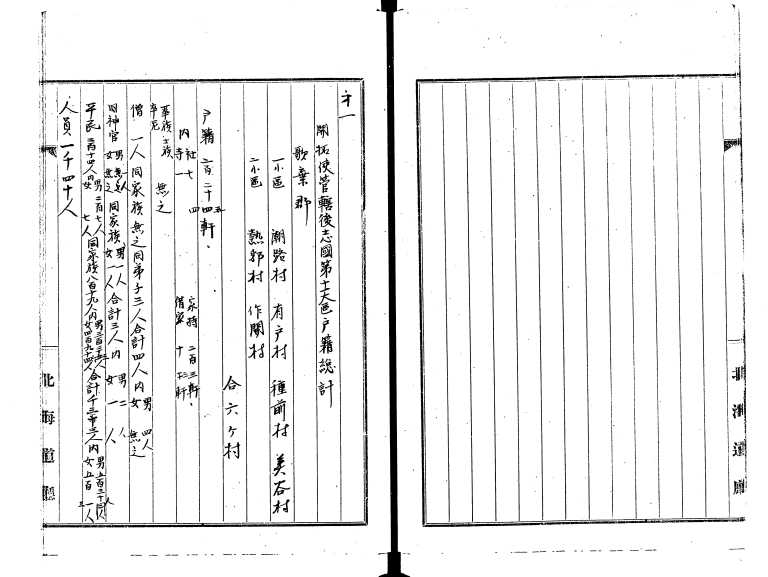 才一
開拓使管轄後志國第十大區户籍總計
歌棄郡
一小區 潮路村 有戸村 種前村 美谷村
二小區 熱郛村 作開村
合六ヶ村
户籍 二百二十四軒
家持 二百三軒
借家 十三軒
内 社七
寺一 四
華族士族
卒尼 無之
僧 一人同家族無之同弟子三人合計四人内 男 四人
女 無之
旧神官 男 一人
女 無之 同家族 男 一人
女 一人 合計三人内 男 二人
女 一人
平民 二百十四人内 男 二百七人
女 七人 同家族八百十九人内
人員一千四十人
北海道廳
北海道廳